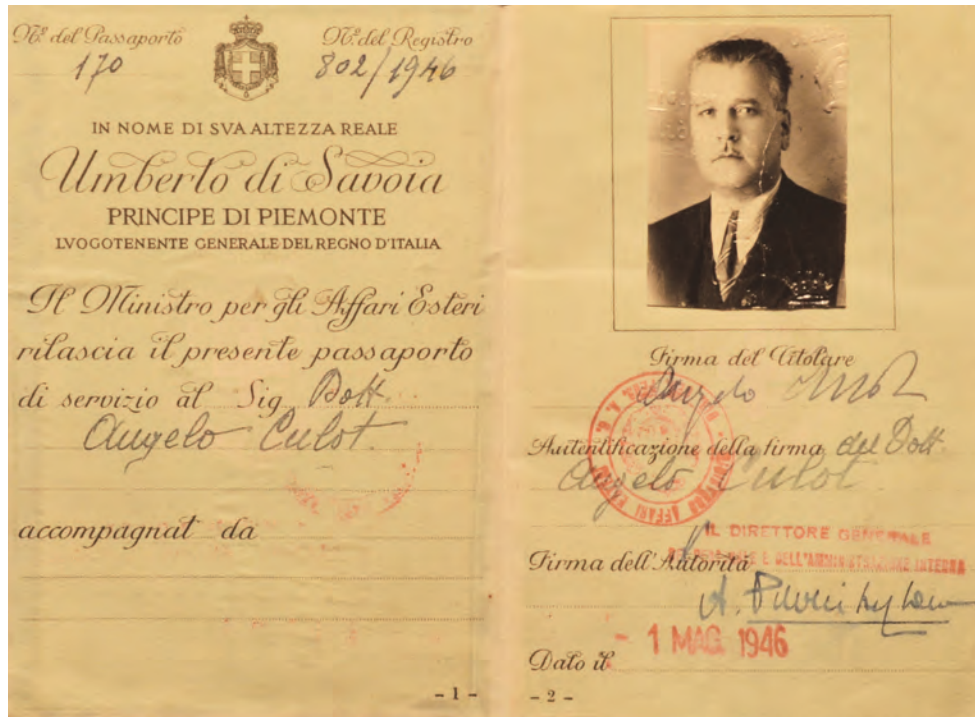 Nº del Passaporto
170
Nº del Registro
802/1946
IN NOME DI SVA ALTEZZA REALE
Umberto di Savoia
PRINCIPE DI PIEMONTE
LVOGOTENENTE GENERALE DEL REGNO D'ITALIA
Il Ministro per gli Affari Esteri
rilascia il presente passaporto
di servizio al Sig. Dott.
Angelo Culot.
accompagnat da
- 1 -
Firma del Titolare
Angelo Culot
Autentificazione della firma del Dott.
Angelo Culot.
IL DIRETTORE GENERALE
DEL PERSONALE E DELL'AMMINISTRAZIONE INTERNA
Firma dell'Autorità
A.
- 1 MAG. 1946
Dato il
- 2 -